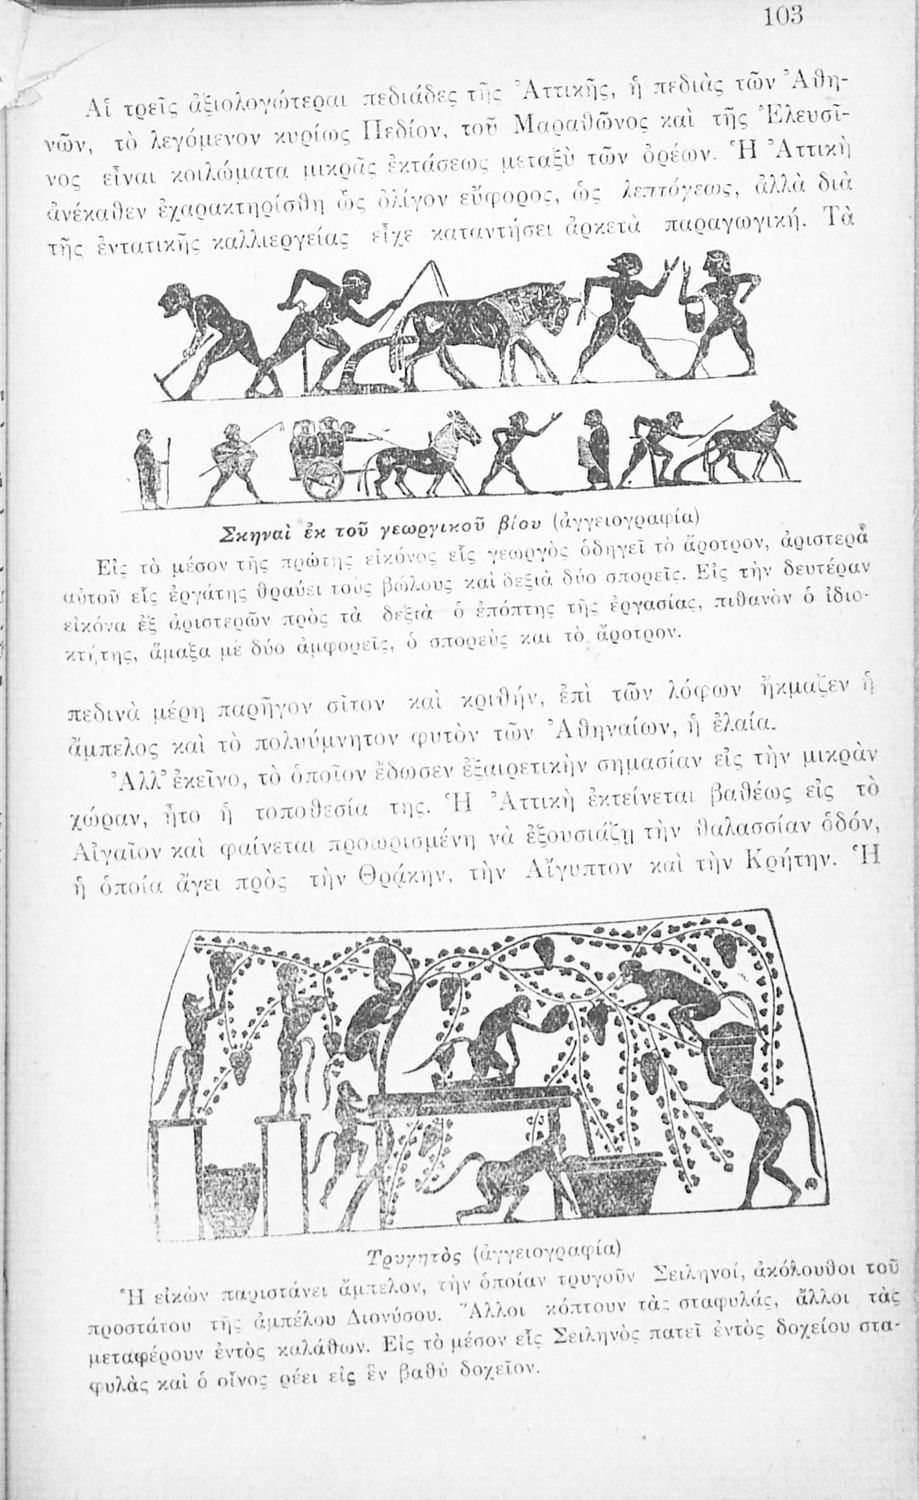 103
Αἱ τρεῖς ἀξιολογώτεραι πεδιάδες τῆς Ἀττικῆς, ἡ πεδιὰς τῶν Ἀθη-
νῶν, τὸ λεγόμενον κυρίως Πεδίον, τοῦ Μαραθῶνος καὶ τῆς Ἐλευσῖ-
νος εἶναι κοιλώματα μικρᾶς ἐκτάσεως μεταξὺ τῶν ὀρέων. Ἡ Ἀττικὴ
ἀνέκαθεν ἐχαρακτηρίσθη ὡς ὀλίγον εὔφορος, ὡς λεπτόγεως, ἀλλὰ διὰ
τῆς ἐντατικῆς καλλιεργείας εἶχε καταντήσει ἀρκετὰ παραγωγική. Τὰ
Σκηναὶ ἐκ τοῦ γεωργικοῦ βίου (ἀγγειογραφία)
Εἰς τὸ μέσον τῆς πρώτης εἰκόνος εἷς γεωργὸς ὁδηγεῖ τὸ ἄροτρον, ἀριστερὰ
αὐτοῦ εἷς ἐργάτης θραύει τοὺς βώλους καὶ δεξιὰ δύο σπορεῖς. Εἰς τὴν δευτέραν
εἰκόνα ἐξ ἀριστερῶν πρὸς τὰ δεξιὰ ὁ ἐπόπτης τῆς ἐργασίας, πιθανὸν ὁ ἰδιο-
κτήτης, ἅμαξα μὲ δύο ἀμφορεῖς, ὁ σπορεὺς καὶ τὸ ἄροτρον.
πεδινὰ μέρη παρῆγον σῖτον καὶ κριθήν, ἐπὶ τῶν λόφων ἤκμαζεν ἡ
ἄμπελος καὶ τὸ πολυύμνητον φυτὸν τῶν Ἀθηναίων, ἡ ἐλαία.
Ἀλλ' ἐκεῖνο, τὸ ὁποῖον ἔδωσεν ἐξαιρετικὴν σημασίαν εἰς τὴν μικρὰν
χώραν, ἦτο ἡ τοποθεσία της. Ἡ Ἀττικὴ ἐκτείνεται βαθέως εἰς τὸ
Αἰγαῖον καὶ φαίνεται προωρισμένη νὰ ἐξουσιάζῃ τὴν θαλασσίαν ὁδόν,
ἡ ὁποία ἄγει πρὸς τὴν Θρᾴκην, τὴν Αἴγυπτον καὶ τὴν Κρήτην. Ἡ
Τρυγητὸς (ἀγγειογραφία)
Ἡ εἰκὼν παριστάνει ἄμπελον, τὴν ὁποίαν τρυγοῦν Σειληνοί, ἀκόλουθοι τοῦ
προστάτου τῆς ἀμπέλου Διονύσου. Ἄλλοι κόπτουν τὰς σταφυλάς, ἄλλοι τὰς
μεταφέρουν ἐντὸς καλάθων. Εἰς τὸ μέσον εἷς Σειληνὸς πατεῖ ἐντὸς δοχείου στα-
φυλὰς καὶ ὁ οἶνος ρέει εἰς ἓν βαθὺ δοχεῖον.